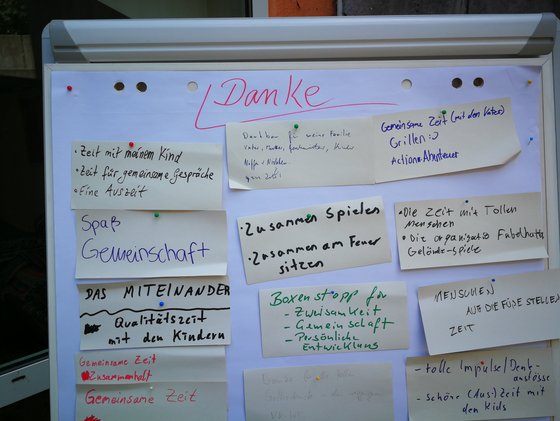 Danke
• Zeit mit meinem Kind
• Zeit für gemeinsame Gespräche
• Eine Auszeit
Dankbar für meine Familie
Vater, Mutter, Kinder
Gemeinsame Zeit (mit den Väter)
Grillen :)
Action + Abenteuer
Spaß
Gemeinschaft
• Zusammen Spielen
• Zusammen am Feuer
sitzen
• Die Zeit mit Tollen
Menschen
• Die organisierte Fabelhafte
Gelände-Spiele
DAS MITEINANDER
Qualitätszeit
mit den Kindern
Boxenstopp für
- Zweisamkeit
- Gemeinschaft
- Persönliche
Entwicklung
MENSCHEN
AUF DIE FÜßE STELLEN
ZEIT
Gemeinsame Zeit
Zusammenhalt
Gemeinsame Zeit
- tolle Impulse/Denk-
anstösse
- schöne (Aus:) Zeit mit
den Kids